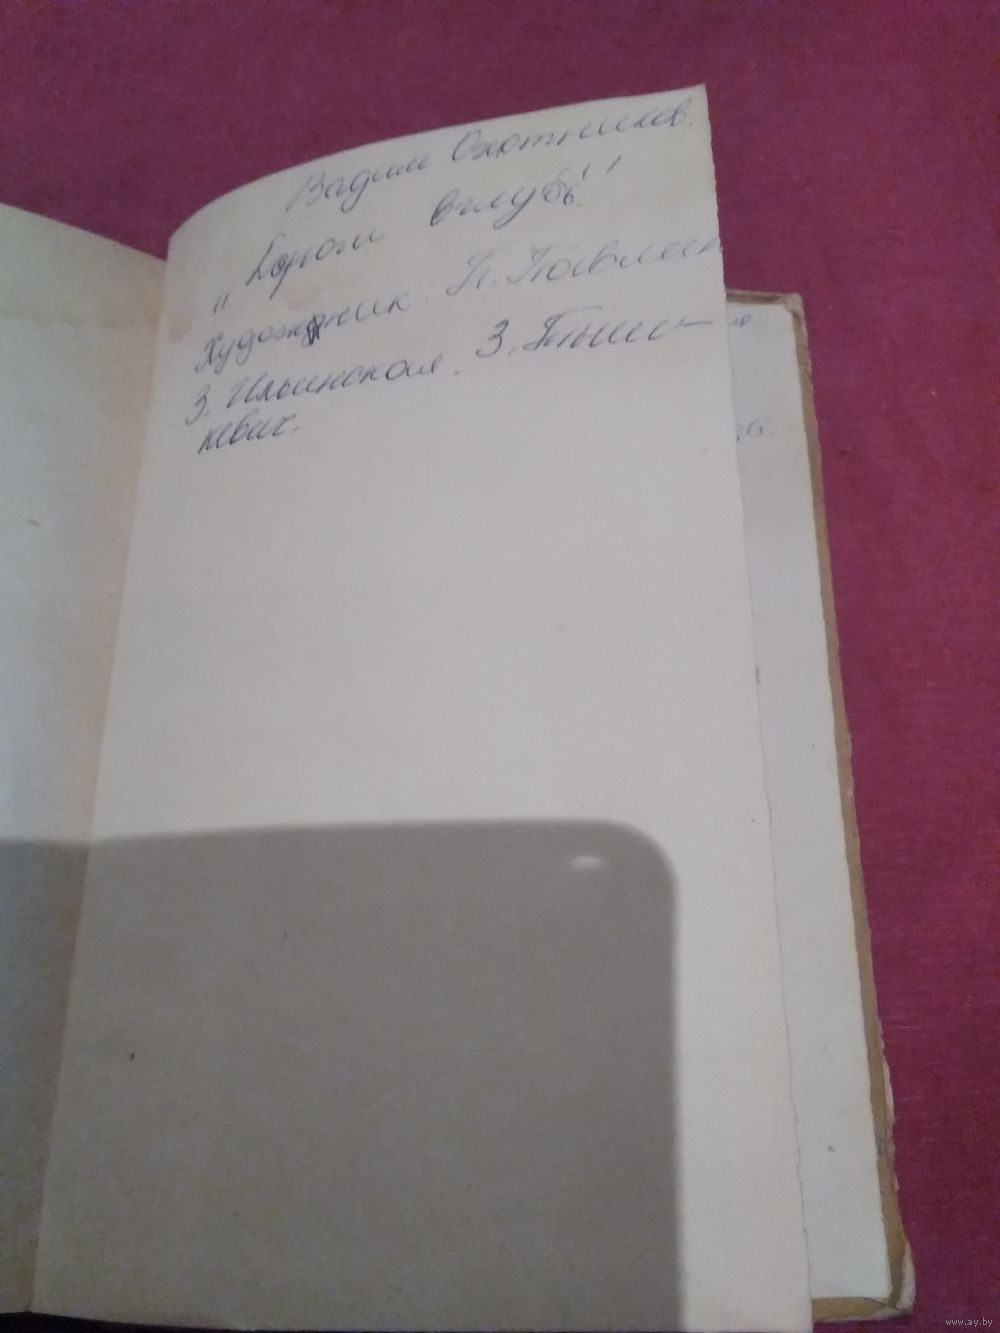 Вадим Охотников.
„Дороги вглубь"
Художник. П. Павлин
З. Ильинская. З. Пыш-
кевич.
я
з,б.
www.ay.by